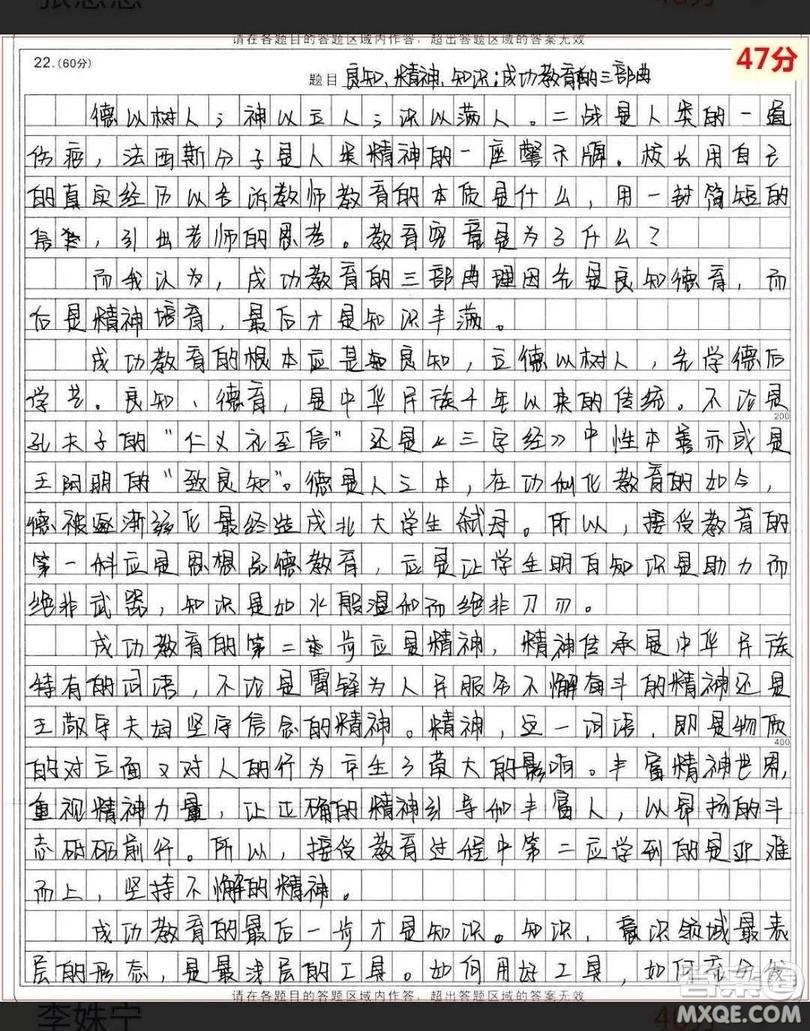 张思思
请在各题目的答题区域内作答，超出答题区域的答案无效
22.(60分)
47分
题目 良知、精神、知识：成功教育的三部曲
德以树人；神以立人；识以满人。二战是人类的一道
伤疤，法西斯分子是人类精神的一座警示牌。校长用自己
的真实经历以告诉教师教育的本质是什么，用一封简短的
信，引出老师的思考。教育究竟是为了什么？
而我认为，成功教育的三部曲理因先是良知德育，而
后是精神培育，最后才是知识丰满。
成功教育的根本应是良知，立德以树人，先学德后
学艺。良知、德育，是中华民族千年以来的传统。不论是
200
孔夫子的“仁义礼至信”还是《三字经》中性本善亦或是
王阳明的“致良知”。德是人之本，在功利化教育的如今，
德被逐渐弱化最终造成北大学生弑母。所以，接受教育的
第一料应是思想品德教育，应是让学生明白知识是助力而
绝非武器，知识是如水般温和而绝非刀刃。
成功教育的第二步应是精神，精神传承是中华民族
特有的词语，不论是雷锋为人民服务不懈奋斗的精神还是
王敬守夫妇坚守信念的精神。精神，这一词语，即是物质
400
的对立面又对人的行为产生了莫大的影响。丰富精神世界，
重视精神力量，让正确的精神引导和丰富人，以昂扬的斗
态砥砺前行。所以，接受教育过程中第二应学到的是迎难
而上，坚持不懈的精神。
成功教育的最后一步才是知识。知识，意识领域最表
层的形态，是最浅层的工具。如何用好工具，如何充分发
请在各题目的答题区域内作答，超出答题区域的答案无效
答案圈
MXQE.COM
李姝宁